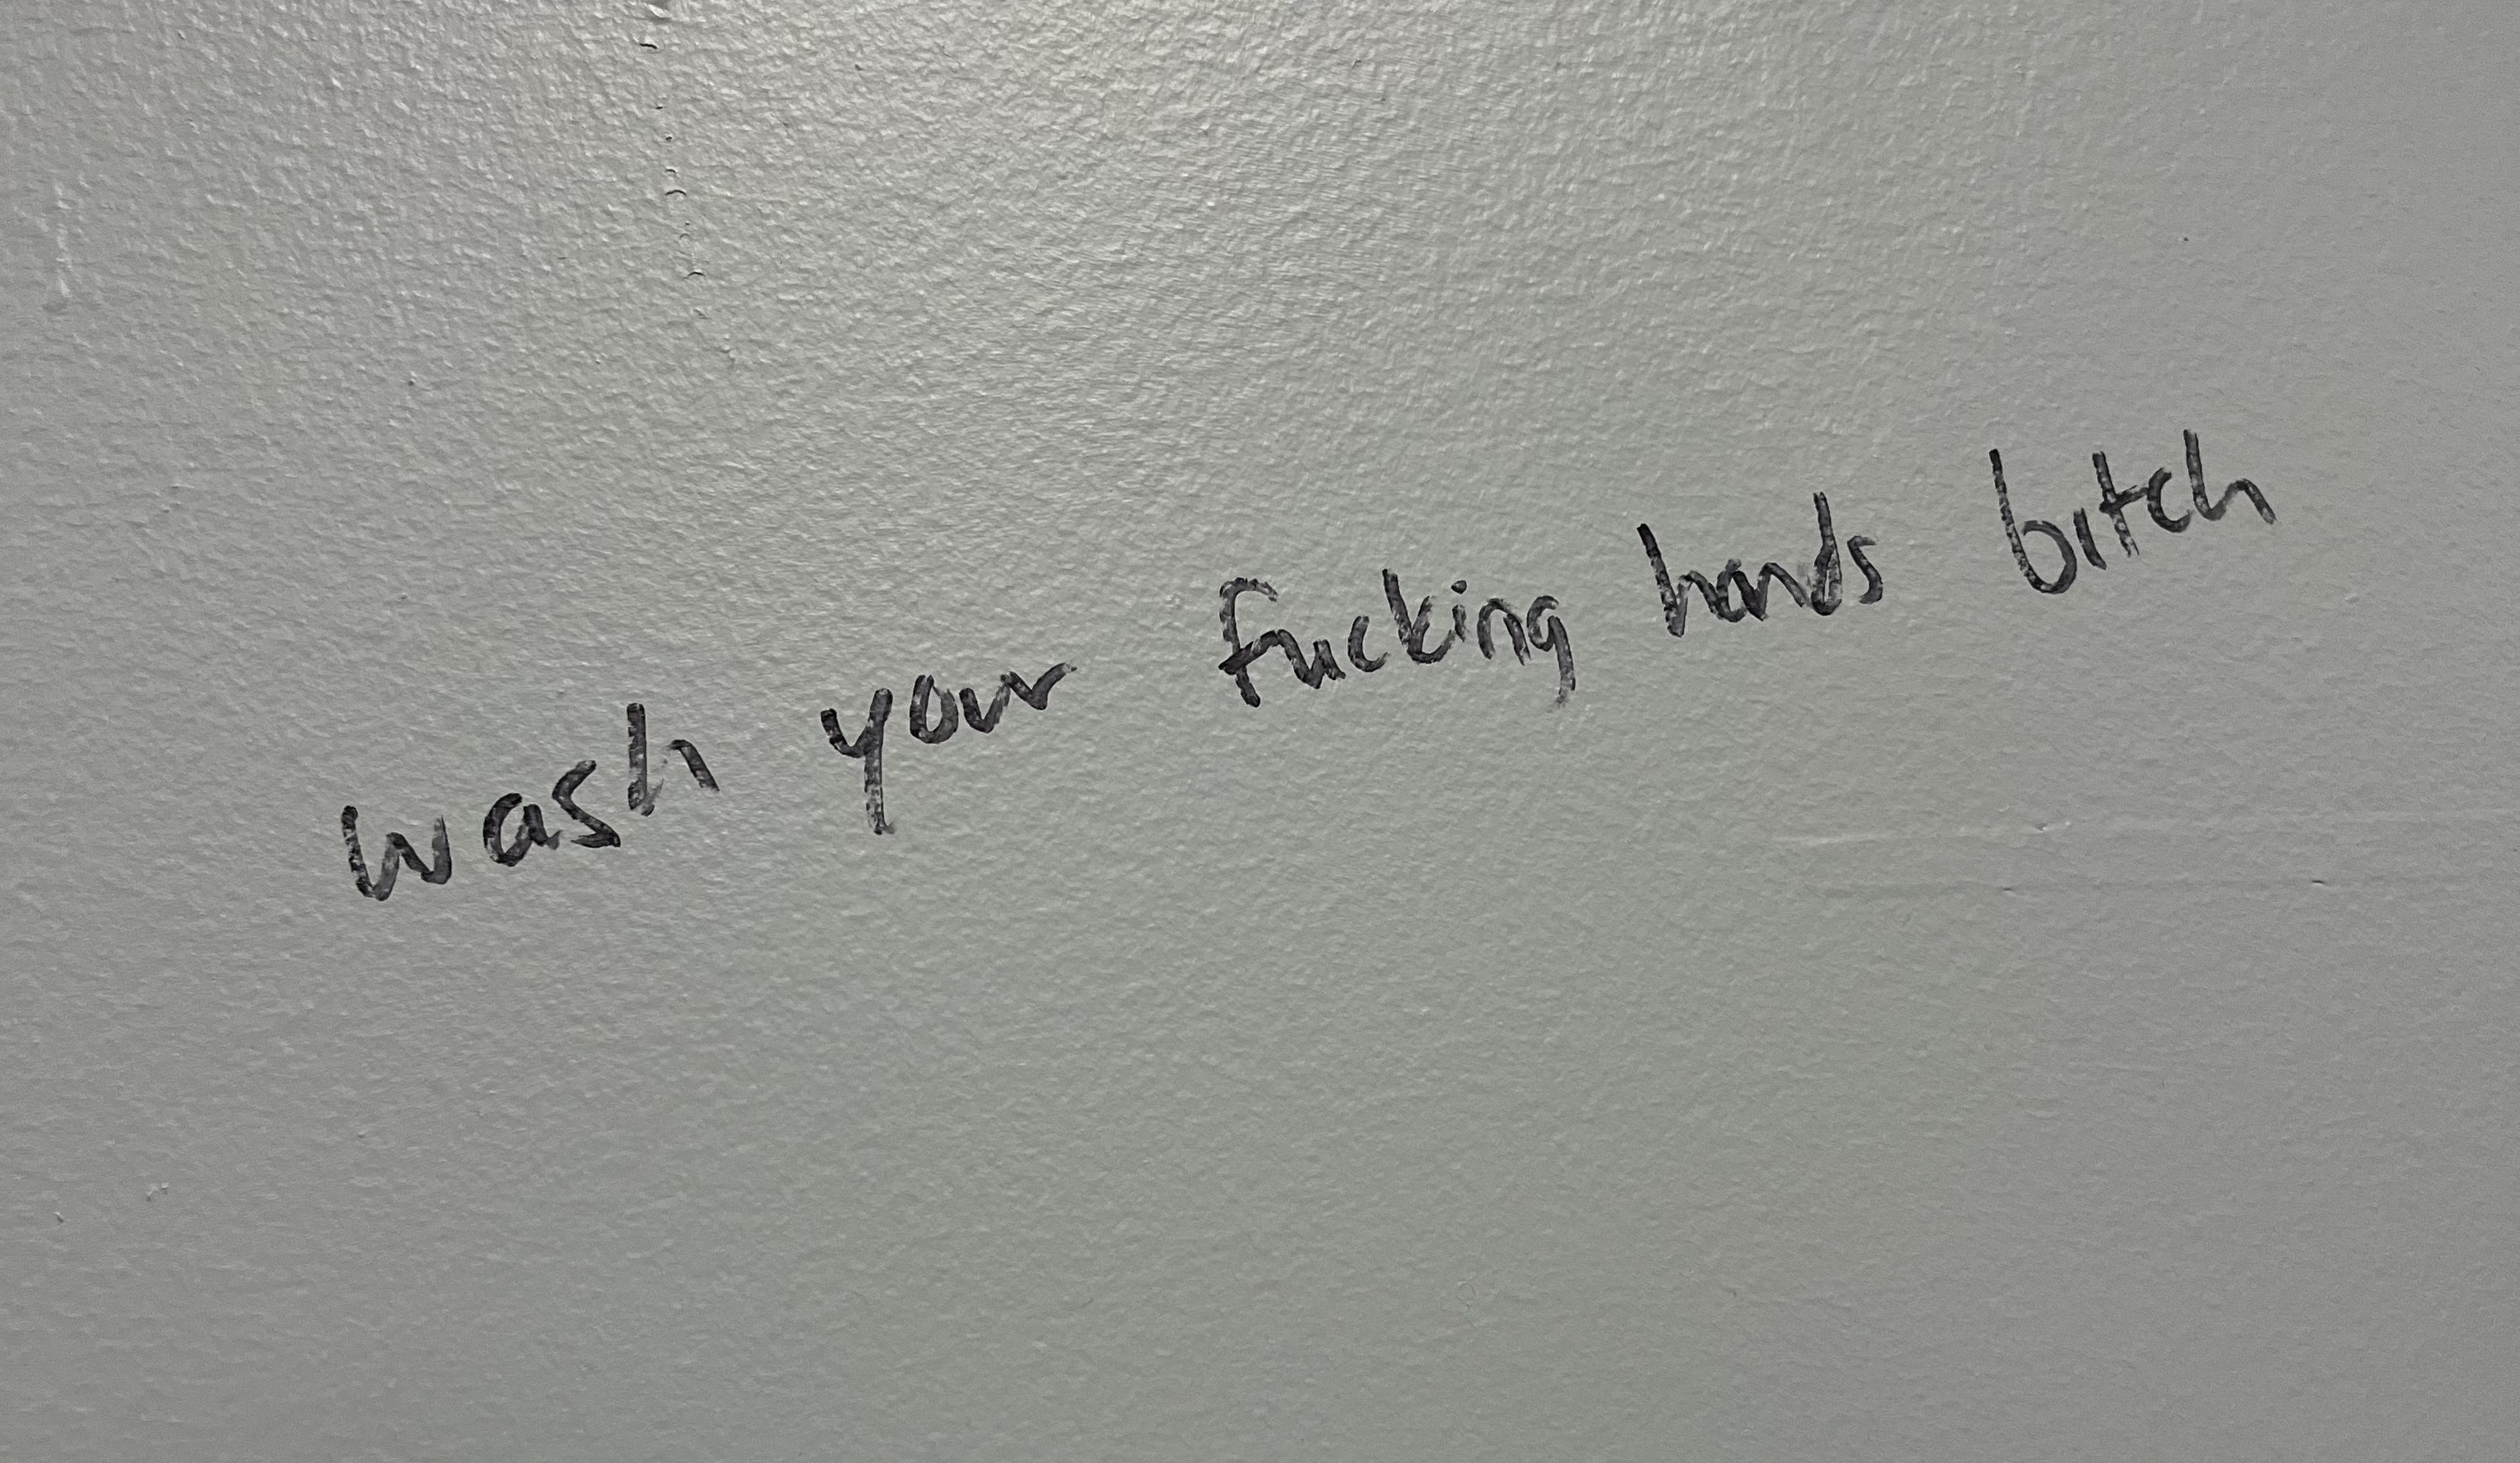 wash your fucking hands bitch